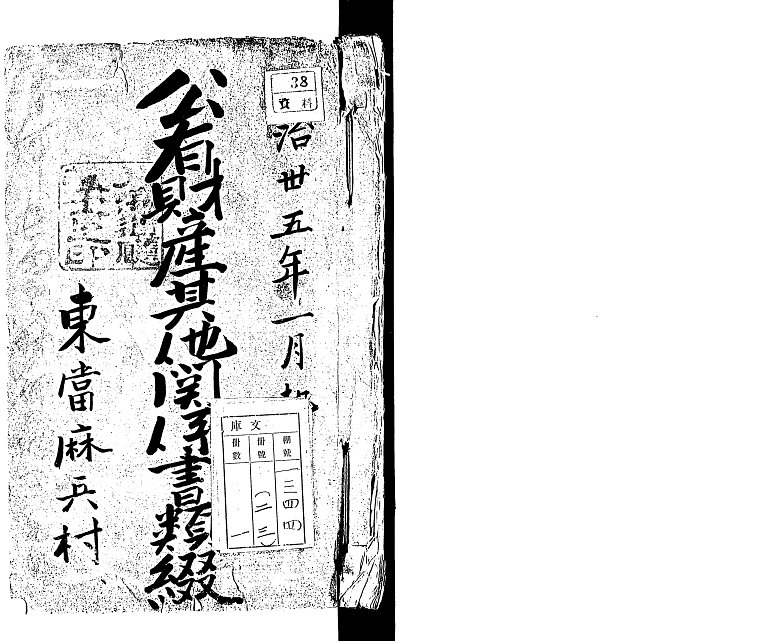 38
資料
治丗五年一月
公有財産其他関係書類綴
東當麻兵村
文庫
棚號
冊號
冊數
一三四四
(二三)
一